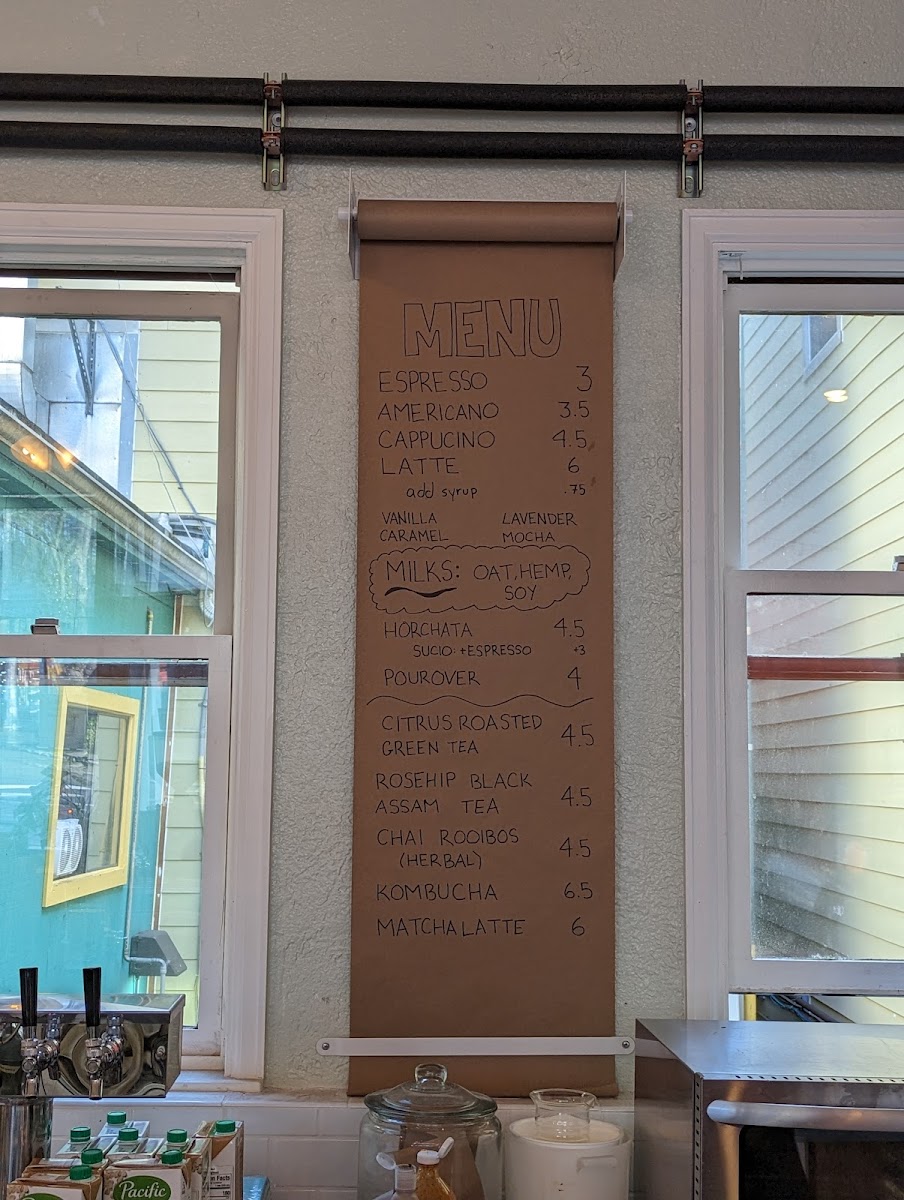 MENU
ESPRESSO 3
AMERICANO 3.5
CAPPUCINO 4.5
LATTE 6
add syrup .75
VANILLA LAVENDER
CARAMEL MOCHA
MILKS: OAT, HEMP,
SOY
HORCHATA 4.5
SUCIO: +ESPRESSO +3
POUROVER 4
CITRUS ROASTED
GREEN TEA 4.5
ROSEHIP BLACK
ASSAM TEA 4.5
CHAI ROOIBOS
(HERBAL) 4.5
KOMBUCHA 6.5
MATCHA LATTE 6
Pacific